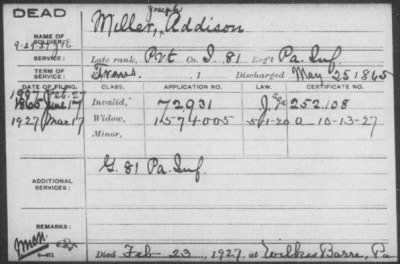 DEAD
NAME OF SOLDIER:
Joseph
Miller, Addison
SERVICE:
Late rank, Pvt Co. I. 81 Reg't Pa. Inf.
TERM OF SERVICE:
Trans. , 1 Discharged May 25 1865
DATE OF FILING.
CLASS.
APPLICATION NO.
LAW.
CERTIFICATE NO.
1865 June 17
Invalid, 72.931 252,108
1927 Mar 17
Widow, 1574005 5/1-20 a-10-13-27
Minor,
ADDITIONAL SERVICES:
G. 81 Pa. Inf.
REMARKS:
Died Feb 23, 1927, at Wilkes Barre, Pa